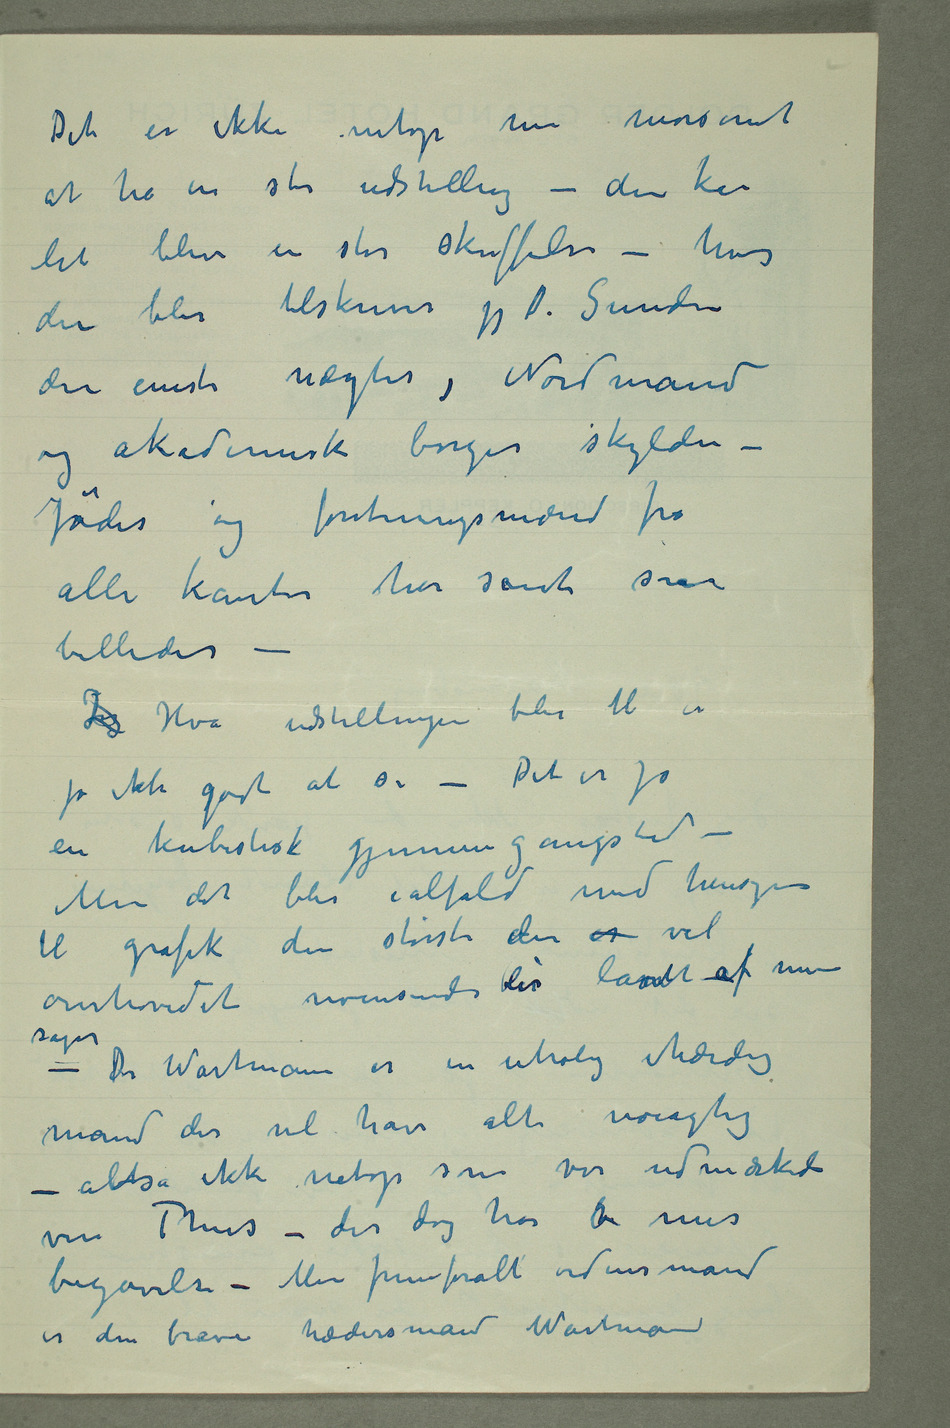 Det er ikke netop mer morsomt
at ha en stor udstilling – den kan
let blive en stor skuffelse – hvis
den blir tilskrives gj D. Sunden
den eneste nægter, Nordmand
og akademisk borger skylden –
Jøder og forretningsmænd fra
alle kanter har sendt sine
billeder –
Jeg Hva udstillingen blir til er
jo ikke godt at se – Det er jo
en kubistisk gjennemgangstid –
Men det blir ialfald med hensyn
til grafik den største der er vel
overhovedet noensinde blir lavet af mine
sager
– Dr Wartmann er en utrolig ihærdig
mand der vil have alt nøiagtig
– altså ikke netop som vor udmærkede
ven Thiis – der dog har be mer
begavelse – Men fremforalt ordensmand
er den brave hædersmand Wartmann